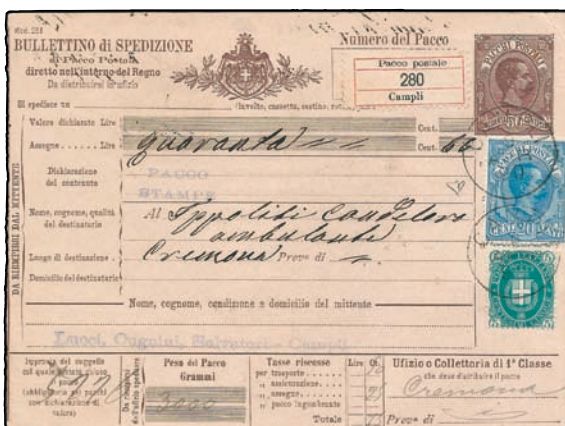 Mod. 251
BULLETTINO di SPEDIZIONE
di Pacco Postale
diretto nell'interno del Regno
Da distribuirsi in ufizio
Numero del Pacco
Pacco postale
280
Campli
PACCHI POSTALI
Si spedisce un (involto, cassetta, cestino,
Valore dichiarato Lire Cent.
Assegno Lire quaranta Cent.
PACCHI POSTALI
Dichiarazione
del contenuto
PACCO
STAMPE
Nome, cognome, qualità
del destinatario
Al Ippoliti Candeloro
ambulante
Luogo di destinazione Cremona Prov. di
Domicilio del destinatario
DA RIEMPIRSI DAL MITTENTE
Nome, cognome, condizione e domicilio del mittente
Lucci, Salvatori - Campli
Impronta del suggello
col quale trovasi chiuso
il pacco
(obbligatoria pei pacchi
con dichiarazione di
valore)
Da riempirsi
dall'ufizio speditore
Peso del Pacco
Grammi
3000
Tasse riscosse Lire Ct.
per trasporto
" assicurazione
" assegno 25
" pacco ingombrante
Totale
Ufizio o Collettoria di 1ª Classe
che deve distribuire il pacco
Cremona
Prov. di